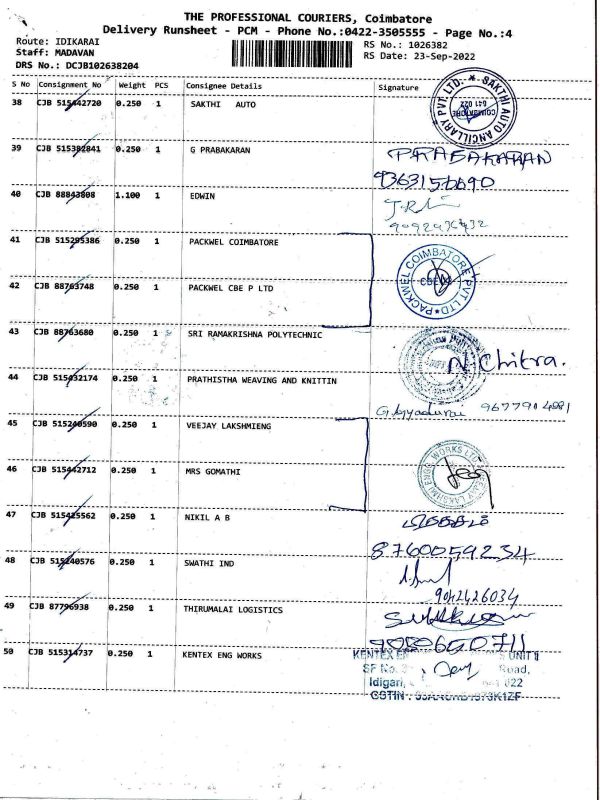 THE PROFESSIONAL COURIERS, Coimbatore
Delivery Runsheet - PCM - Phone No.:0422-3505555 - Page No.:4
Route: IDIKARAI
Staff: MADAVAN
DRS No.: DCJB102638204
RS No.: 1026382
RS Date: 23-Sep-2022
S No Consignment No Weight PCS Consignee Details Signature
38 CJB 515442720 0.250 1 SAKTHI AUTO
SAKTHI AUTO ANCILLARY PVT. LTD. COIMBATORE 641 022
39 CJB 515382841 0.250 1 G PRABAKARAN PRABAKARAN
40 CJB 88843808 1.100 1 EDWIN
41 CJB 515295386 0.250 1 PACKWEL COIMBATORE
PACKWEL COIMBATORE PVT LTD
42 CJB 88763748 0.250 1 PACKWEL CBE P LTD
43 CJB 88763680 0.250 1 SRI RAMAKRISHNA POLYTECHNIC N. Chitra.
44 CJB 515432174 0.250 1 PRATHISTHA WEAVING AND KNITTIN
45 CJB 515240590 0.250 1 VEEJAY LAKSHMIENG
46 CJB 515442712 0.250 1 MRS GOMATHI
47 CJB 515425562 0.250 1 NIKIL A B
8760059234
48 CJB 515240576 0.250 1 SWATHI IND
9042426034
49 CJB 87796938 0.250 1 THIRUMALAI LOGISTICS
50 CJB 515314737 0.250 1 KENTEX ENG WORKS
KENTEX UNIT II
SF No. Road,
Idigari, 022
GSTIN :